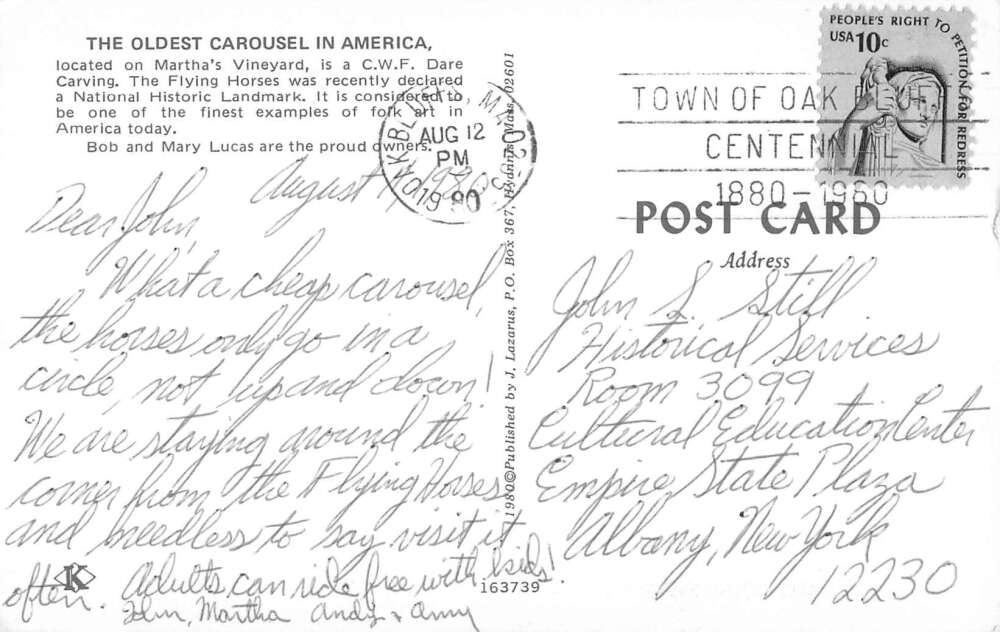 THE OLDEST CAROUSEL IN AMERICA,
located on Martha's Vineyard, is a C.W.F. Dare
Carving. The Flying Horses was recently declared
a National Historic Landmark. It is considered to
be one of the finest examples of folk art in
America today.
Bob and Mary Lucas are the proud owners.
August 1980
Dear John,
What a cheap carousel,
the horses only go in a
circle, not up and down!
We are staying around the
corner from the Flying Horses
and needless to say visit it
often. Adults can ride free with kids!
John, Martha Andy & Amy
K
1980©Published by J. Lazarus, P.O. Box 367, Hyannis, Mass. 02601
163739
OAK BLUFFS, MA
AUG 12
PM
1980
TOWN OF OAK BLUFFS
CENTENNIAL
1880-1980
PEOPLE'S RIGHT TO PETITION FOR REDRESS
USA 10c
POST CARD
Address
John L. Still
Historical Services
Room 3099
Cultural Education Center
Empire State Plaza
Albany, New York
12230